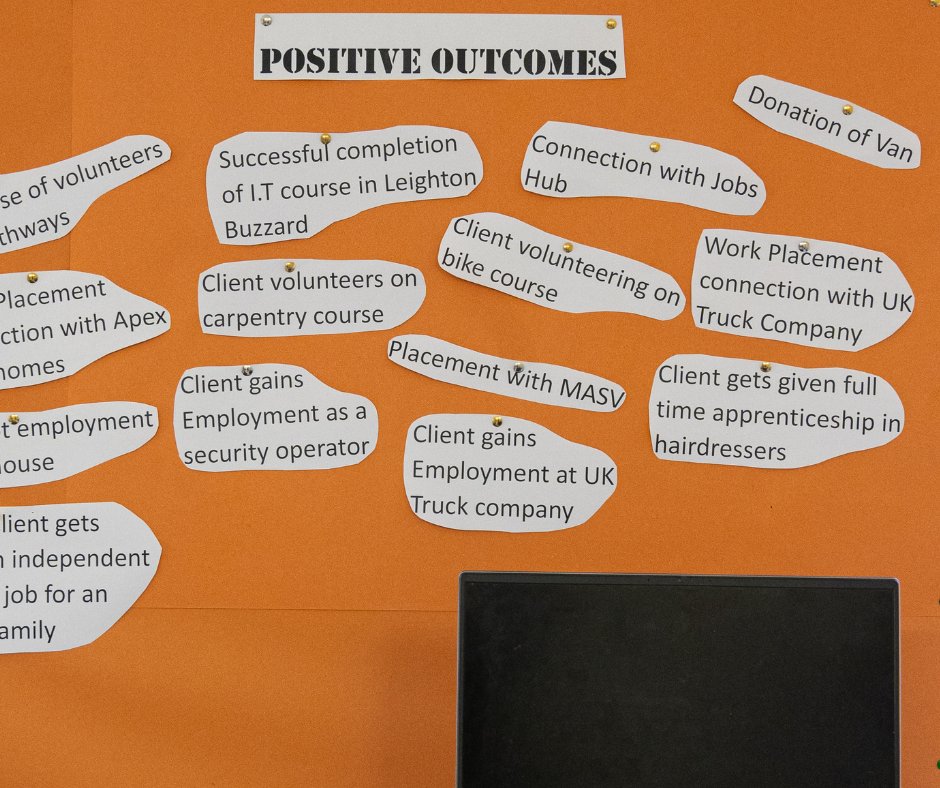 POSITIVE OUTCOMES
Donation of Van
of volunteers
Successful completion
of I.T course in Leighton
Buzzard
Connection with Jobs
Hub
Client volunteering on
bike course
Work Placement
connection with UK
Truck Company
Placement
with Apex
homes
Client volunteers on
carpentry course
Placement with MASV
Client gains
Employment as a
security operator
Client gets given full
time apprenticeship in
hairdressers
employment
Client gains
Employment at UK
Truck company
gets
independent
job for an